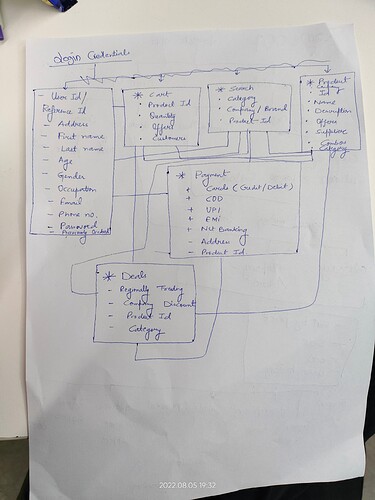 Login Credentials
- User Id/
Reference Id
- Address
- First name
- Last name
- Age
- Gender
- Occupation
- Email
- Phone no.
- Password
* Cart
• Product Id
• Quantity
• Offers
• Customers
* Search
• Category
• Company/Brand
• Product-Id
* Product
• Id
• Name
• Description
• Offers
• Supplier
• Category
* Payment
+ Cards (Credit/Debit)
+ COD
+ UPI
+ EMI
+ Net Banking
- Address
- Product Id
* Deals
- Regionally Trading
- Company Discount
- Product Id
- Category
2022.08.05 19:32